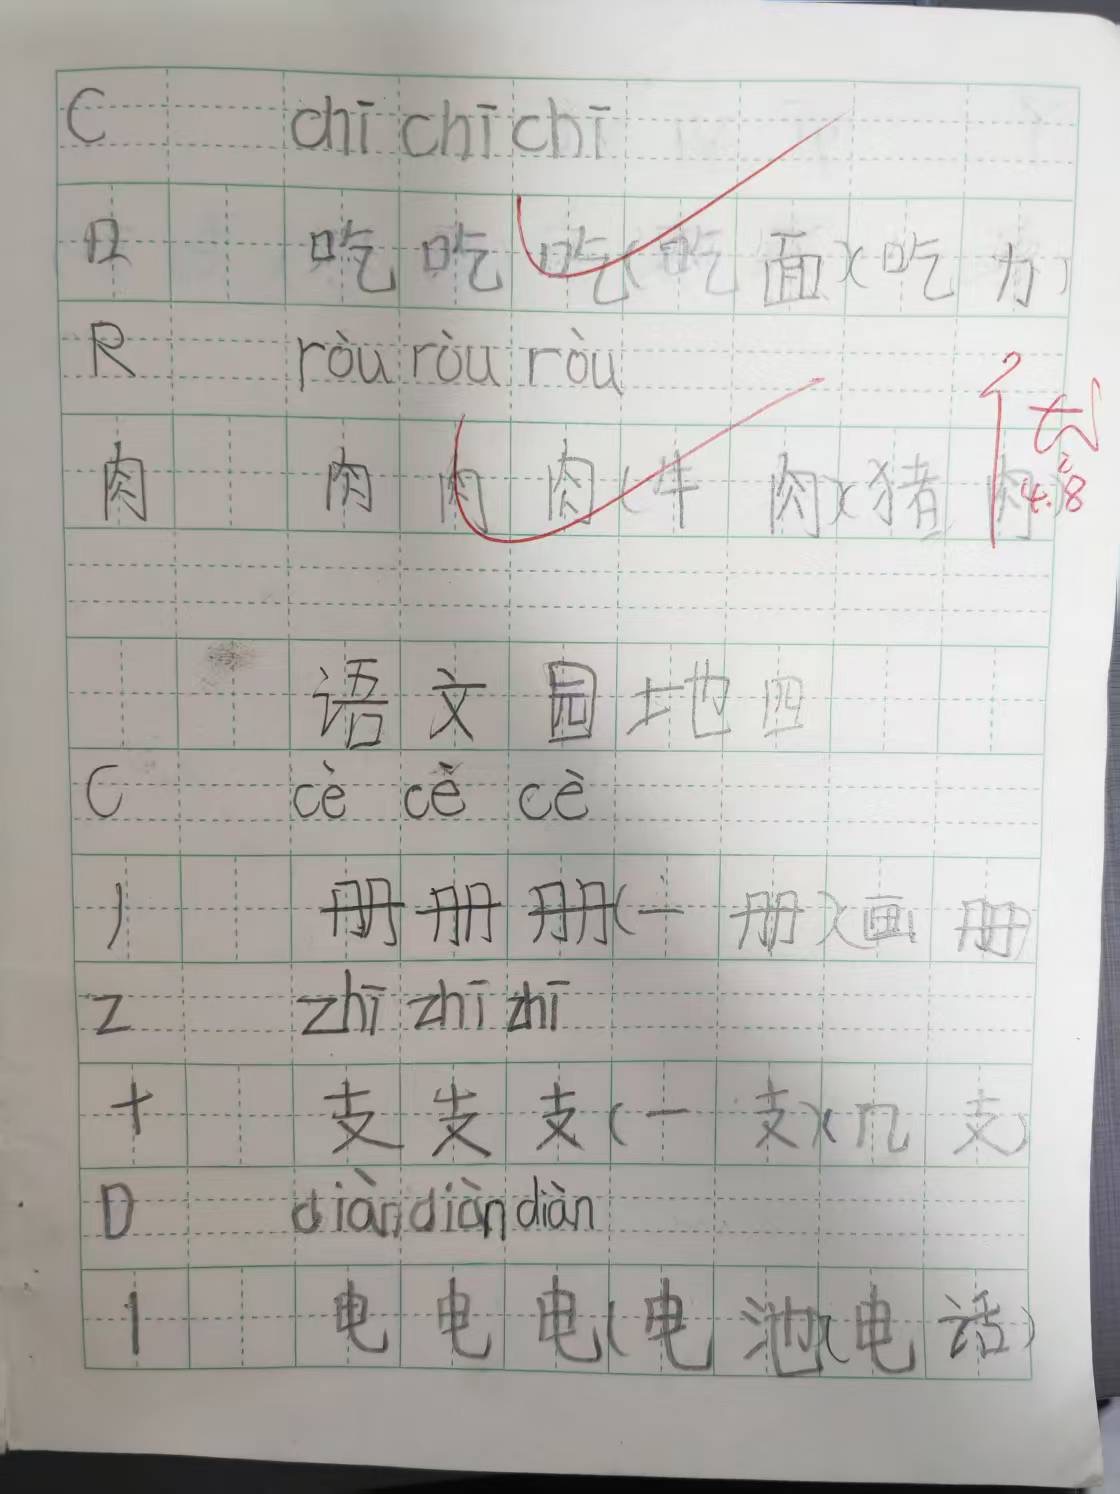 C chī chī chī
口 吃 吃 吃(吃 面)(吃 力)
R ròu ròu ròu
肉 肉 肉 肉(牛 肉)(猪 肉)
4.8
语 文 园 地 四
C cè cě cè
丿 册 册 册(一 册)(画 册)
Z zhī zhī zhī
十 支 支 支(一 支)(几 支)
D diàn diàn diàn
丨 电 电 电(电 池)(电 话)